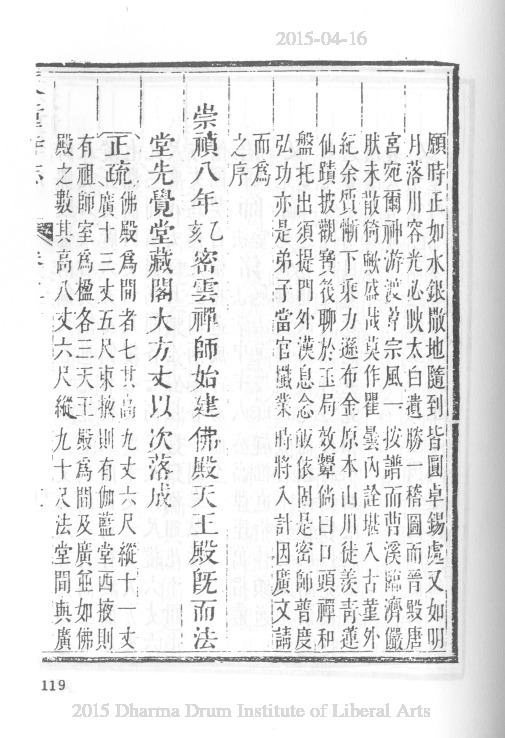 2015-04-16
願時正如水銀撒地隨到皆圓卓錫處又如明
月落川容光必映太白遺勝稽圖而晉毀唐
宮宛爾神游渡葦宗風一按譜而曹溪臨濟儼
肰未散猗歟盛哉莫作瞿曇內詮堪入古堇外
紀余質慚下乘力遜布金原本山川徒羨青蓮
仙蹟披觀寶筏聊於玉局效顰倘曰口頭禪和
盤托出須提門外漢息念皈依固是密師普度
弘功亦是弟子當官懺業時將入計因廣文請
而爲
之序
崇禎八年乙亥密雲禪師始建佛殿天王殿旣而法
堂先覺堂藏閣大方丈以次落成
正疏佛殿爲間者七其高九丈六尺縱十一丈
廣十三丈五尺東掖則有伽藍堂西掖則
有祖師室爲楹各三天王殿爲間及廣並如佛
殿之數其高八丈六尺縱九十尺法堂間與廣
119
2015 Dharma Drum Institute of Liberal Arts